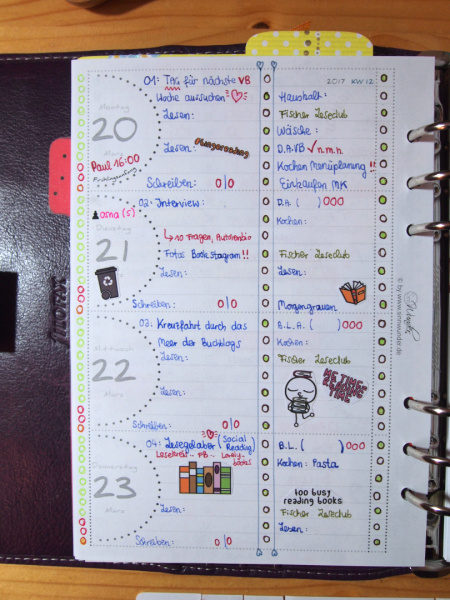 2017 KW 12
Montag
20
März
Paul 16:00
Frühlingsanfang
01: TAG für nächste VB
Woche aussuchen
Lesen:
Lesen:
Schreiben: 0/0
Haushalt:
Fischer Leseclub
Wäsche:
D.A.VB ✓n.m.h.
Kochen Menüplanung !!
Einkaufen MK
Dienstag
21
März
02: Interview:
↳ 10 Fragen, Autorenbio
Fotos Bookstagram!!
Lesen:
Schreiben: 0/0
D.A. ( ) 000
Kochen:
Fischer Leseclub
Lesen:
Morgengrauen
Mittwoch
22
März
03: Kreuzfahrt durch das
Meer der Buchblogs
Lesen:
Lesen:
Schreiben: 0/0
B.L.A. ( ) 000
Kochen:
Fischer Leseclub
ME TIME=
READING
TIME
Donnerstag
23
März
04: Lesegelaber (Social
Reading)
Lovely-
books
Lesen:
Schreiben: 0/0
B.L. ( ) 000
Kochen: Pasta
too busy
reading books
Fischer Leseclub
Lesen: